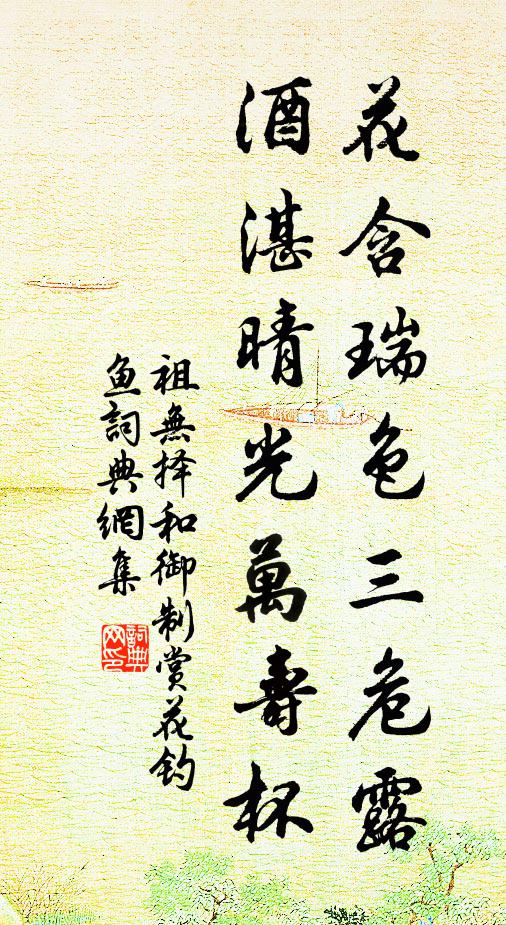 花含瑞色三危露
酒湛晴光萬壽杯
祖無择和御制赏花钓
鱼詞典網集
詞典
网印